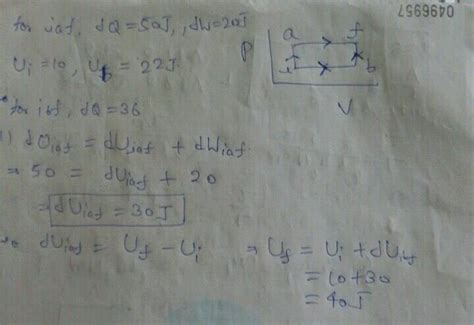 for iaf, dQ = 50J, dW = 20J
Ui = 10, Ub = 22J
for ibf, dQ = 36
1) dQiaf = dUiaf + dWiaf
⇒ 50 = dUiaf + 20
⇒ dUiaf = 30J
dUiaf = Uf - Ui ⇒ Uf = Ui + dUiaf
= 10 + 30
= 40J
P
a
f
i
b
V
0496957